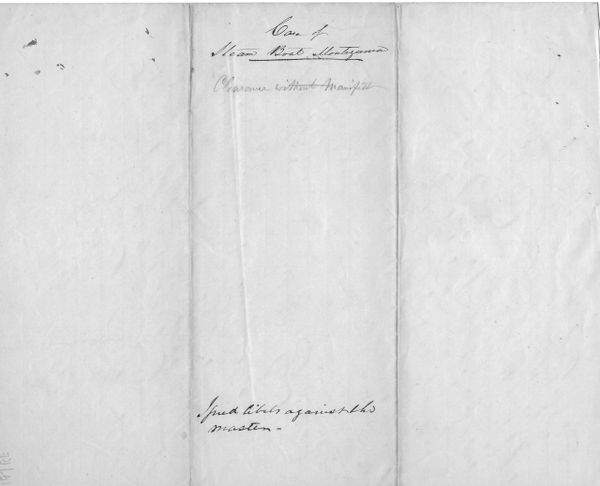 Case of
Steam Boat Montezuma
Clearance without Manifest
libels against the
master -